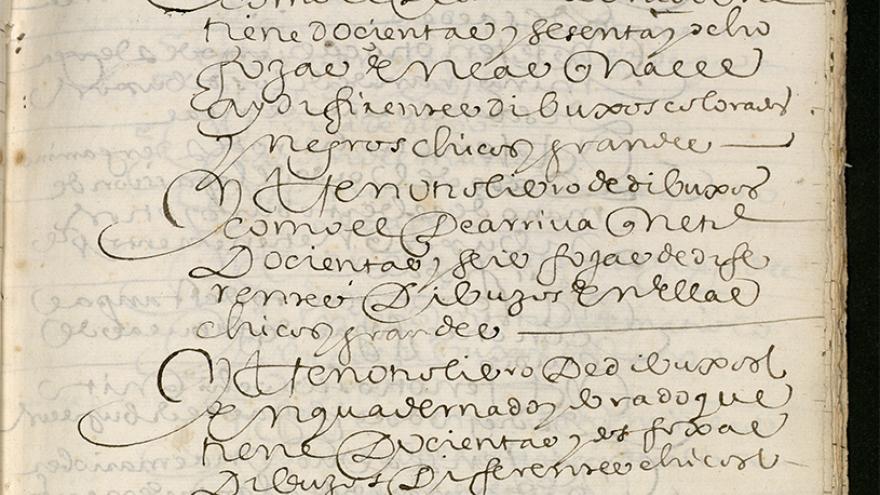 como el
tiene docientas y sesenta y ocho
fojas En las quales
ay difirentes dibuxos colorados
y negros chicos y grandes
Yten otro libro de dibuxos
como el De arriva que tiene
Docientas y seis fojas de dife
rentes Dibuxos En ellas
chicos y grandes
Yten otro libro De dibuxos
Enquadernado y dorado que
tiene Docientas y foxas
Dibuxos Diferentes chicos